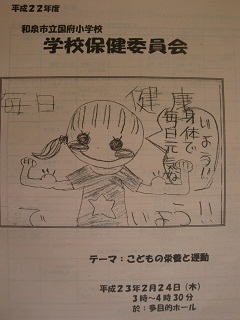 平成22年度
和泉市立国府小学校
学校保健委員会
毎日 健康
身体で
毎日元気
いよう!!
で
テーマ：こどもの栄養と運動
平成23年2月24日（木）
3時～4時30分
於：多目的ホール